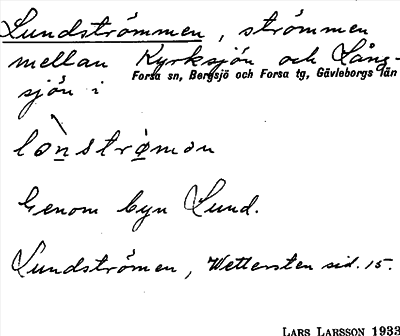 Lundströmmen, strömmen
mellan Kyrksjön och Lång-
Forsa sn, Bergsjö och Forsa tg, Gävleborgs län
sjön i
lonstrømən
Genom byn Lund.
Lundströmen, Wettersten sid. 15.
LARS LARSSON 1933